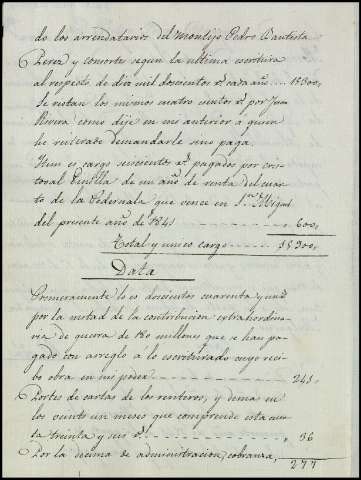 do los arrendatarios del Montijo Pedro Bautista
Perez y consortes segun la ultima escritura
al respeto de diez mil doscientos rs. cada año ... 15300,
Se restan los mismos cuatro cientos rs. por Juan
Rivera como dije en mi anterior a quien
he reiterado demandarle sino paga.
Item es cargo seiscientos rs. pagados por Cris-
toval de un año de renta del cuar-
to de la Pedernala que vence en Sn. Miguel
del presente año de 1841 600,
Total y unico cargo 15300,
Data
Primeramente lo es doscientos cuarenta y un rs.
por la mitad de la contribucion extrahordina-
ria de guerra de 180 millones que se han pa-
gado con arreglo a lo escriturado cuyo reci-
bo obra en mi poder 241,
Portes de cartas de los renteros, y demas en
los veinte un meses que comprende esta cuen-
ta treinta y seis rs. , 36
Por la decima de administracion, cobranza, 277